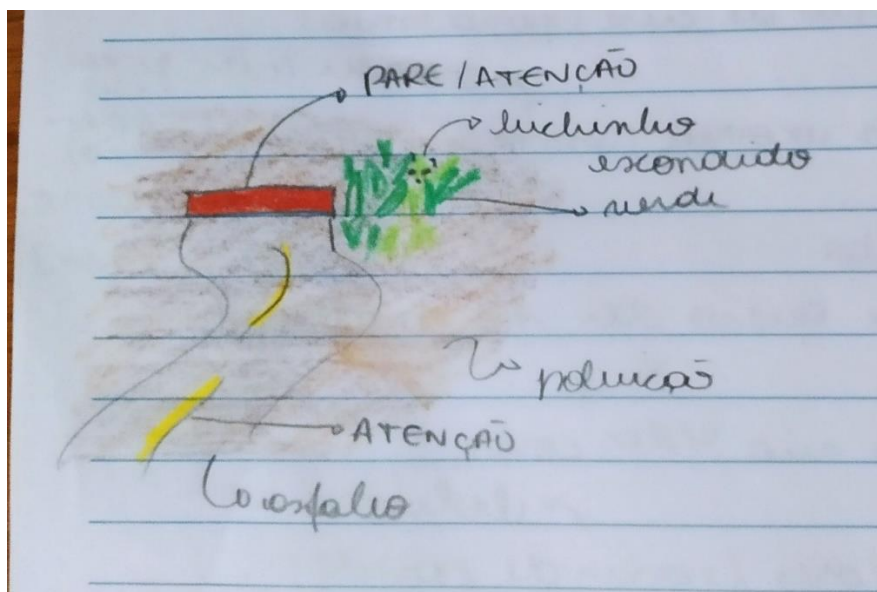 PARE / ATENÇÃO
bichinho
escondido
verde
poluição
ATENÇÃO
asfalto